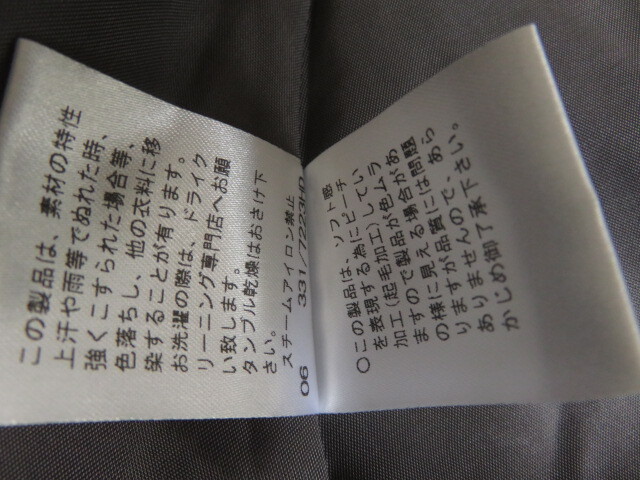 この製品は、素材の特性
上汗や雨等でぬれた時、
強くこすられた場合等、
色落ちし、他の衣料に移
染することが有ります。
お洗濯の際は、ドライク
リーニング専門店へお願
い致します。
タンブル乾燥はおさけ下
さい。
スチームアイロン禁止
331/7223HD
06
○この製品は、ソフト感
を表現する為にピーチ
加工(起毛加工)してい
ますので製品が色ムラ
の様に見える場合があ
りますが品質には問題
ありませんので、あら
かじめ御了承下さい。